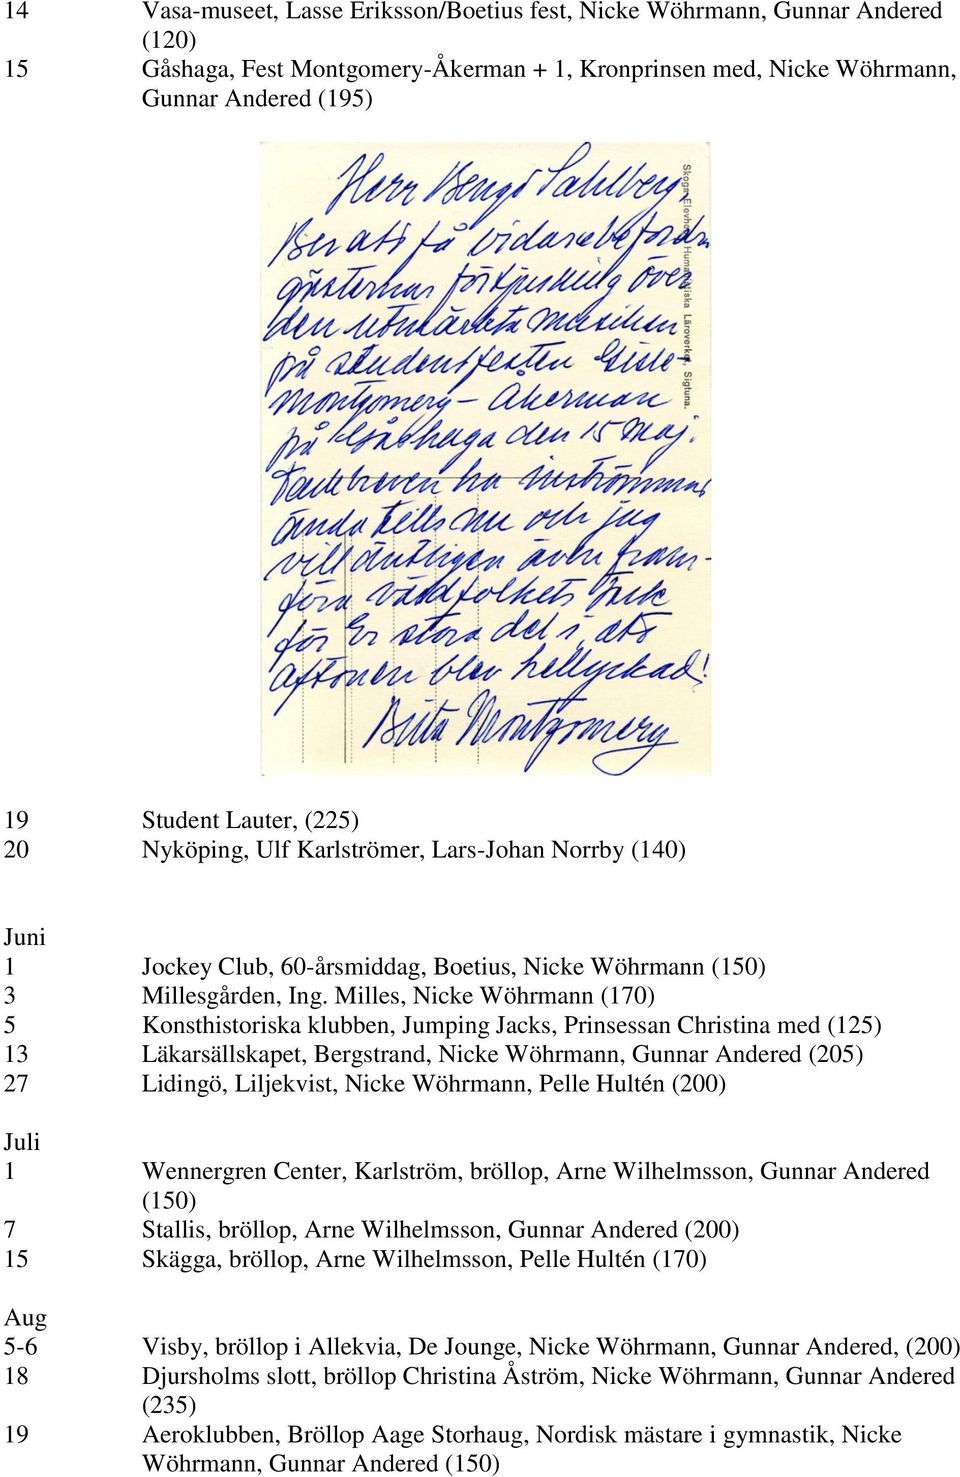 14 Vasa-museet, Lasse Eriksson/Boetius fest, Nicke Wöhrmann, Gunnar Andered
(120)
15 Gåshaga, Fest Montgomery-Åkerman + 1, Kronprinsen med, Nicke Wöhrmann,
Gunnar Andered (195)
Herr Bengt Sahlberg,
Ber att få vidarebefordra
gästernas förtjusning över
den utmärkta musiken
på studentfesten Gisle
Montgomery - Åkerman
på Gåshaga den 15 Maj.
Tackbreven ha inströmmat
ända tills nu och jag
vill äntligen även fram-
föra värdfolkets tack
för Er stora del i, att
aftonen blev hellyckad!
Brita Montgomery
Skogs Elevhem, Humanistiska Läroverket, Sigtuna.
19 Student Lauter, (225)
20 Nyköping, Ulf Karlströmer, Lars-Johan Norrby (140)
Juni
1 Jockey Club, 60-årsmiddag, Boetius, Nicke Wöhrmann (150)
3 Millesgården, Ing. Milles, Nicke Wöhrmann (170)
5 Konsthistoriska klubben, Jumping Jacks, Prinsessan Christina med (125)
13 Läkarsällskapet, Bergstrand, Nicke Wöhrmann, Gunnar Andered (205)
27 Lidingö, Liljekvist, Nicke Wöhrmann, Pelle Hultén (200)
Juli
1 Wennergren Center, Karlström, bröllop, Arne Wilhelmsson, Gunnar Andered
(150)
7 Stallis, bröllop, Arne Wilhelmsson, Gunnar Andered (200)
15 Skägga, bröllop, Arne Wilhelmsson, Pelle Hultén (170)
Aug
5-6 Visby, bröllop i Allekvia, De Jounge, Nicke Wöhrmann, Gunnar Andered, (200)
18 Djursholms slott, bröllop Christina Åström, Nicke Wöhrmann, Gunnar Andered
(235)
19 Aeroklubben, Bröllop Aage Storhaug, Nordisk mästare i gymnastik, Nicke
Wöhrmann, Gunnar Andered (150)